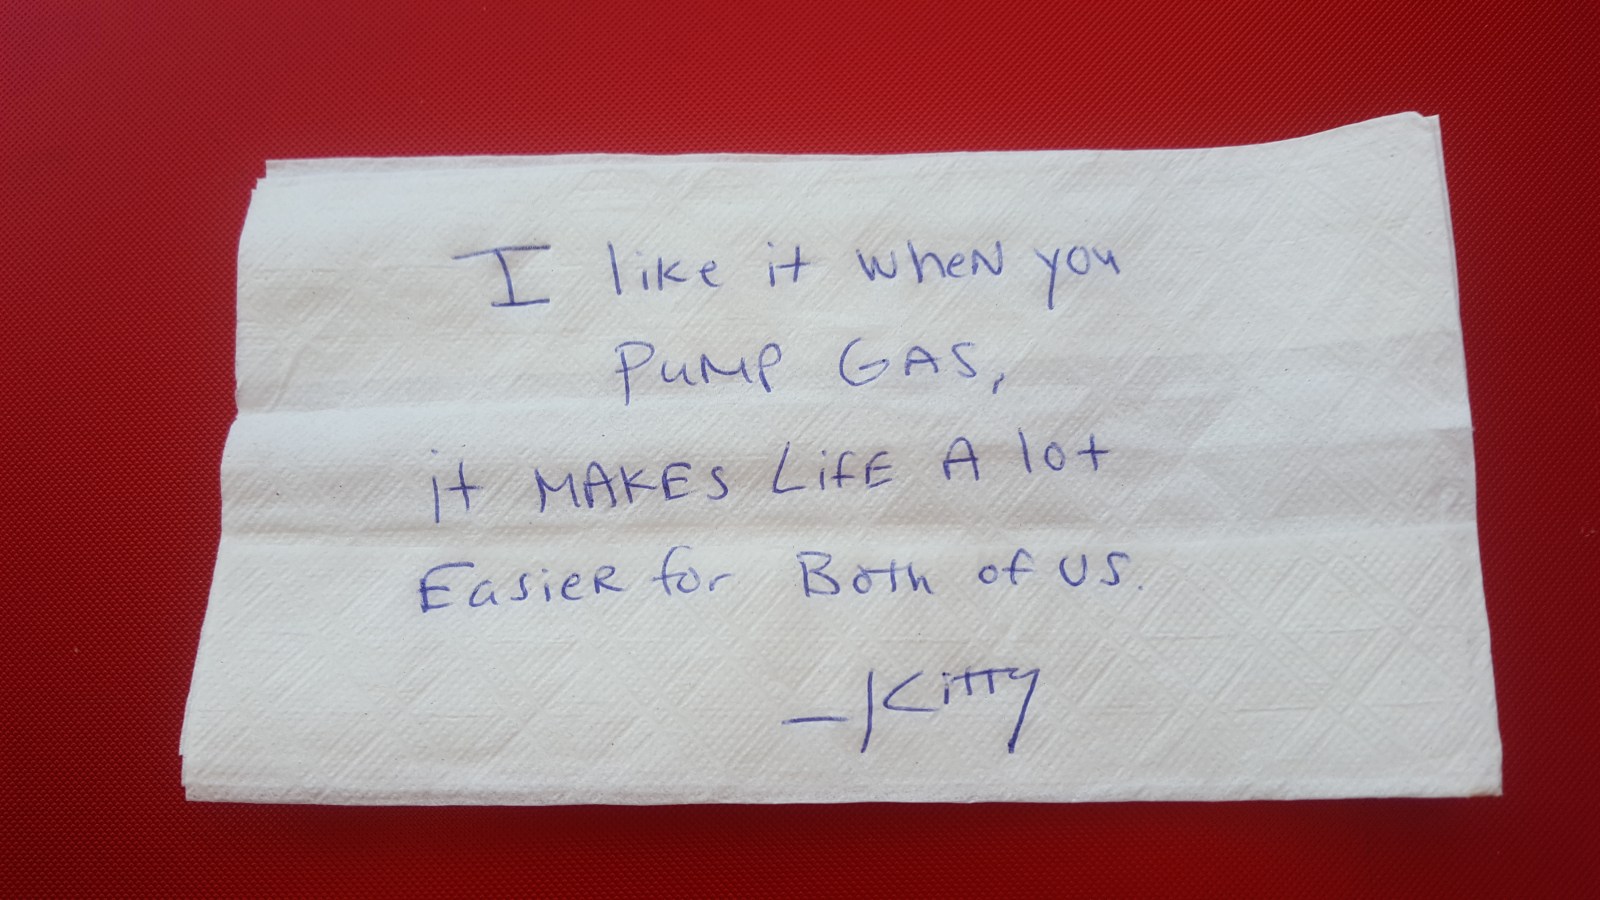 I like it wheN you
PuMP GAS,
it MAKES LifE A lot
EasieR for Both of US.
—Kitty